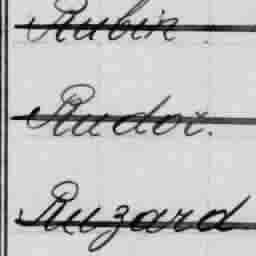 Rubin
Rudoi.
Ruzard